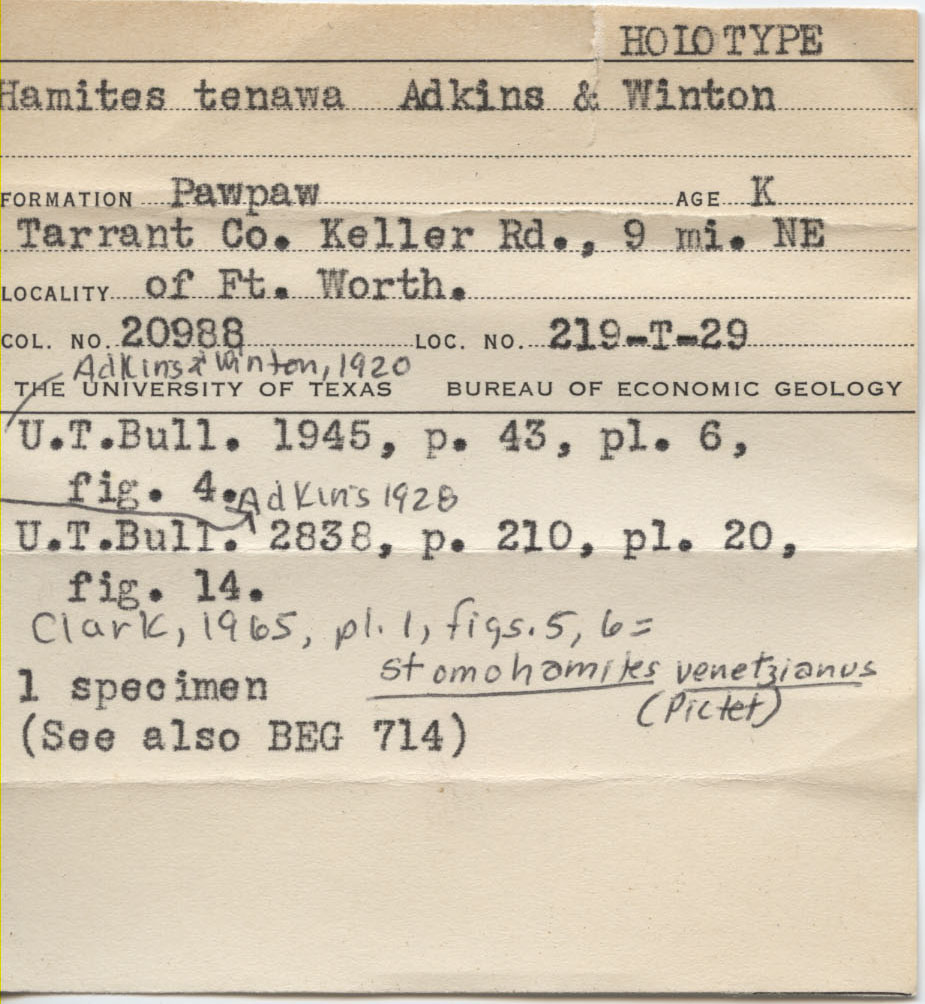 HOLOTYPE
Hamites tenawa Adkins & Winton
FORMATION Pawpaw AGE K
Tarrant Co. Keller Rd., 9 mi. NE
LOCALITY of Ft. Worth.
COL. NO. 20988 LOC. NO. 219-T-29
Adkins & Winton, 1920
THE UNIVERSITY OF TEXAS BUREAU OF ECONOMIC GEOLOGY
U.T.Bull. 1945, p. 43, pl. 6,
fig. 4.
Adkins 1928
U.T.Bull. 2838, p. 210, pl. 20,
fig. 14.
Clark, 1965, pl. 1, figs. 5, 6 =
stomohamites venetzianus
(Pictet)
1 specimen
(See also BEG 714)